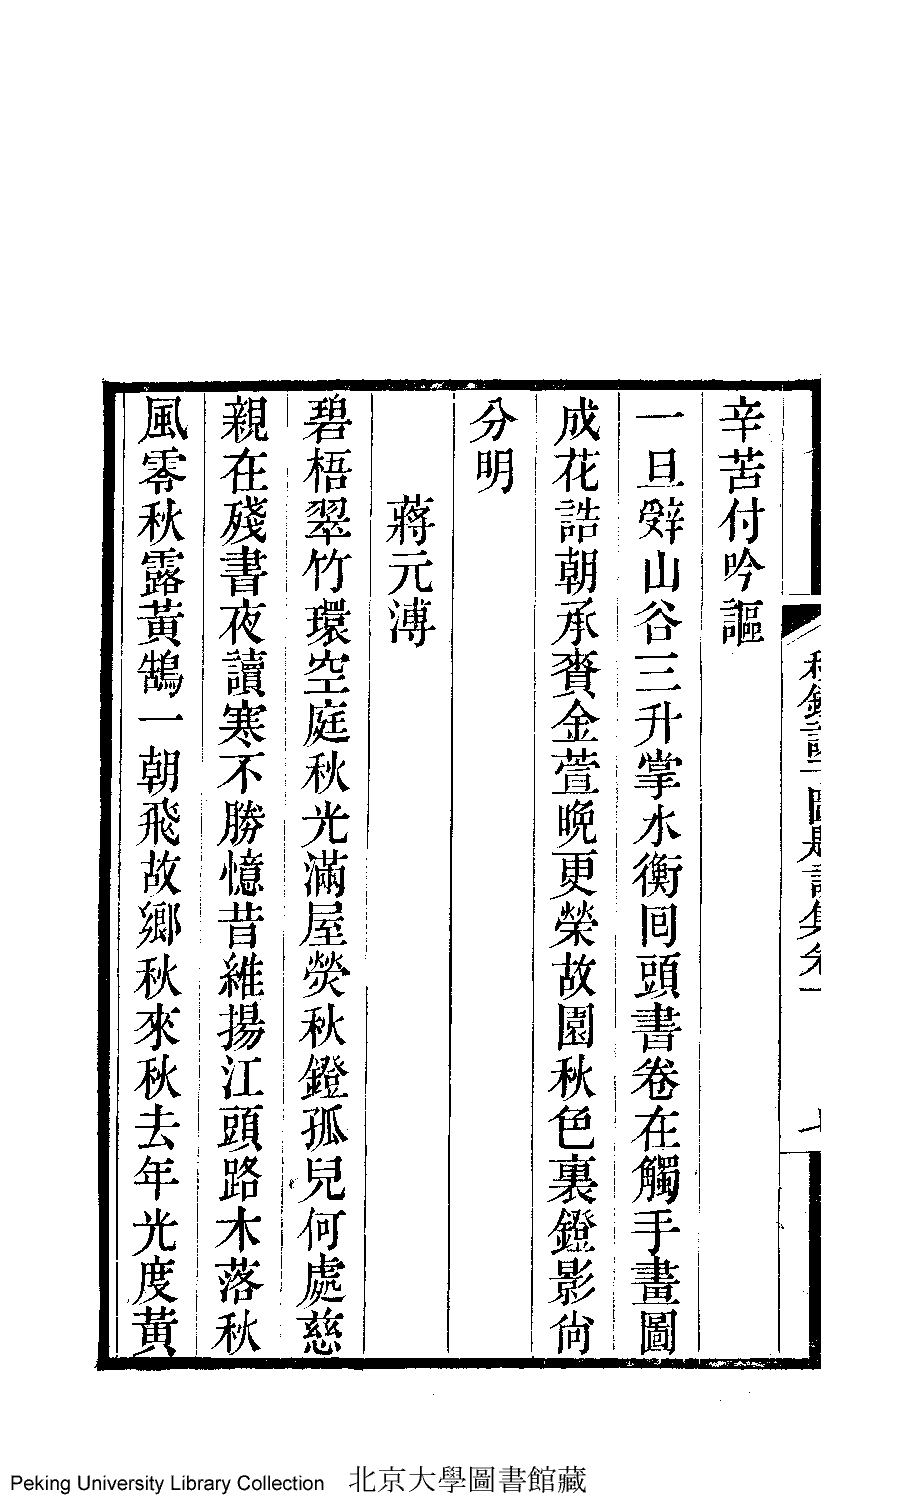 辛苦付吟謳
一旦辭山谷三升掌水衡囘頭書卷在觸手畫圖
成花誥朝承賚金萱晚更榮故園秋色裏鐙影尙
分明
蔣元溥
碧梧翠竹環空庭秋光滿屋熒秋鐙孤兒何處慈
親在殘書夜讀寒不勝憶昔維揚江頭路木落秋
風零秋露黃鵠一朝飛故鄉秋來秋去年光度黃
秋鐙課子圖題詩集卷一
七
Peking University Library Collection 北京大學圖書館藏